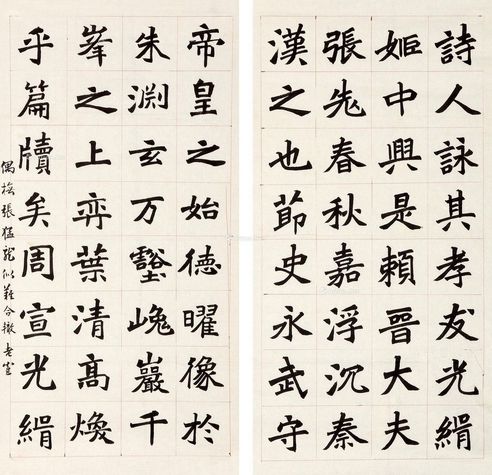 詩人詠其孝友光緝
姬中興是賴晉大夫
張老春秋嘉浮沉秦
漢之也節史永武守
帝皇之始德曜像於
朱淵玄万壑嵬巖千
峯之上弈葉清高煥
乎篇牘矣周宣光緝
偶橅張猛龍似